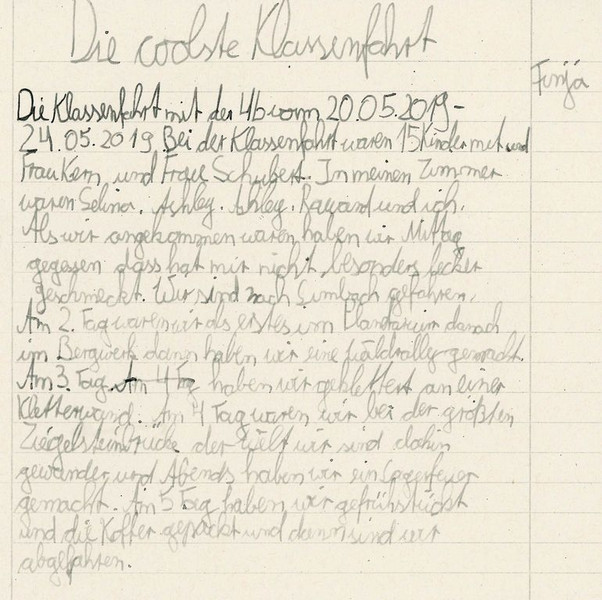 Die coolste Klassenfahrt
Finja
Die Klassenfahrt mit der 4b vom 20.05.2019-
24.05.2019. Bei der Klassenfahrt waren 15 Kinder mit und
Frau Kern und Frau Schubert. In meinen Zimmer
waren Selina, Ashley, Ashley, Rawand und ich.
Als wir angekommen waren haben wir Mittag
gegessen dass hat mir nicht besonders lecker
geschmeckt. Wir sind nach gefahren.
Am 2. Tag waren wir als erstes im Planetarium danach
im Bergwerk dann haben wir eine Waldrally gemacht.
Am 3. Tag. Am 4 Tag haben wir geklettert an einer
Kletterwand. Am 4 Tag waren wir bei der größten
Ziegelsteinbrücke der Welt wir sind dahin
gewandert und Abends haben wir ein
gemacht. Am 5 Tag haben wir gefrühstückt
und die Koffer gepackt und dann sind wir
abgefahren.